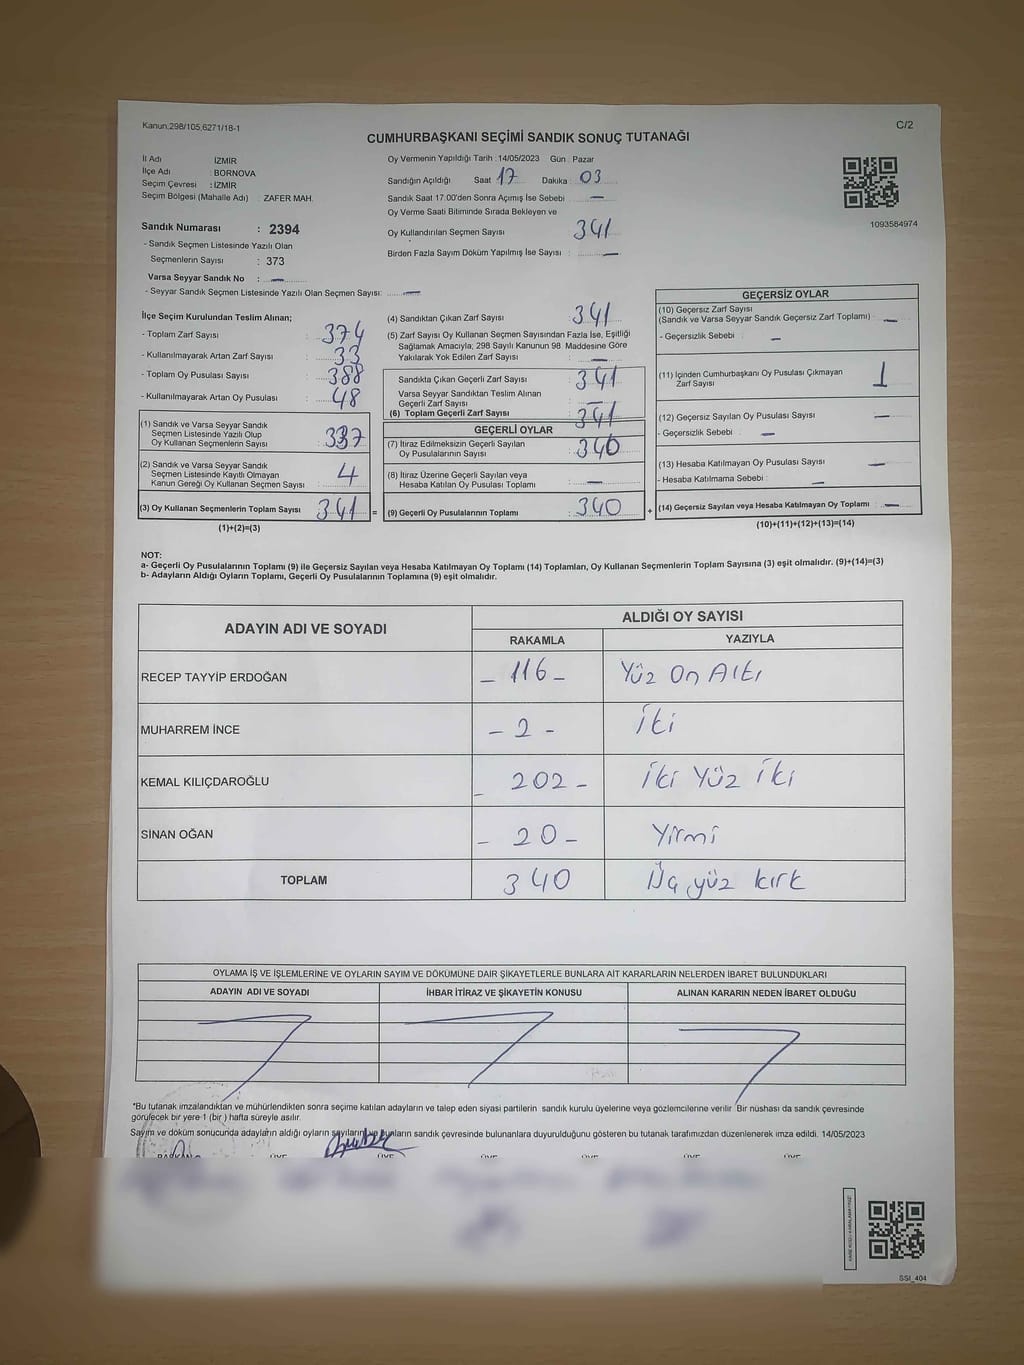 Kanun;298/105,6271/18-1
C/2
CUMHURBAŞKANI SEÇİMİ SANDIK SONUÇ TUTANAĞI
İl Adı : İZMİR
İlçe Adı : BORNOVA
Seçim Çevresi : İZMİR
Seçim Bölgesi (Mahalle Adı) : ZAFER MAH.
Oy Vermenin Yapıldığı Tarih :14/05/2023 Gün : Pazar
Sandığın Açıldığı Saat 17 Dakika : 03
Sandık Saat 17:00'den Sonra Açımış İse Sebebi —
Oy Verme Saati Bitiminde Sırada Bekleyen ve
Oy Kullandırılan Seçmen Sayısı 341
Birden Fazla Sayım Döküm Yapılmış İse Sayısı : —
1093584974
Sandık Numarası : 2394
- Sandık Seçmen Listesinde Yazılı Olan
Seçmenlerin Sayısı : 373
Varsa Seyyar Sandık No : —
- Seyyar Sandık Seçmen Listesinde Yazılı Olan Seçmen Sayısı: —
İlçe Seçim Kurulundan Teslim Alınan;
- Toplam Zarf Sayısı : 374
- Kullanılmayarak Artan Zarf Sayısı : 33
- Toplam Oy Pusulası Sayısı : 388
- Kullanılmayarak Artan Oy Pusulası : 48
(1) Sandık ve Varsa Seyyar Sandık
Seçmen Listesinde Yazılı Olup
Oy Kullanan Seçmenlerin Sayısı : 337
(2) Sandık ve Varsa Seyyar Sandık
Seçmen Listesinde Kayıtlı Olmayan
Kanun Gereği Oy Kullanan Seçmen Sayısı : 4
(3) Oy Kullanan Seçmenlerin Toplam Sayısı 341 =
(1)+(2)=(3)
(4) Sandıktan Çıkan Zarf Sayısı : 341
(5) Zarf Sayısı Oy Kullanan Seçmen Sayısından Fazla İse, Eşitliği
Sağlamak Amacıyla; 298 Sayılı Kanunun 98. Maddesine Göre
Yakılarak Yok Edilen Zarf Sayısı : —
Sandıkta Çıkan Geçerli Zarf Sayısı : 341
Varsa Seyyar Sandıktan Teslim Alınan
Geçerli Zarf Sayısı : —
(6) Toplam Geçerli Zarf Sayısı : 341
GEÇERLİ OYLAR
(7) İtiraz Edilmeksizin Geçerli Sayılan
Oy Pusulalarının Sayısı : 340
(8) İtiraz Üzerine Geçerli Sayılan veya
Hesaba Katılan Oy Pusulası Toplamı : —
(9) Geçerli Oy Pusulalarının Toplamı : 340 +
GEÇERSİZ OYLAR
(10) Geçersiz Zarf Sayısı
(Sandık ve Varsa Seyyar Sandık Geçersiz Zarf Toplamı) : —
- Geçersizlik Sebebi : —
(11) İçinden Cumhurbaşkanı Oy Pusulası Çıkmayan
Zarf Sayısı : 1
(12) Geçersiz Sayılan Oy Pusulası Sayısı : —
- Geçersizlik Sebebi : —
(13) Hesaba Katılmayan Oy Pusulası Sayısı : —
- Hesaba Katılmama Sebebi : —
(14) Geçersiz Sayılan veya Hesaba Katılmayan Oy Toplamı : —
(10)+(11)+(12)+(13)=(14)
NOT:
a- Geçerli Oy Pusulalarının Toplamı (9) ile Geçersiz Sayılan veya Hesaba Katılmayan Oy Toplamı (14) Toplamları, Oy Kullanan Seçmenlerin Toplam Sayısına (3) eşit olmalıdır. (9)+(14)=(3)
b- Adayların Aldığı Oyların Toplamı, Geçerli Oy Pusulalarının Toplamına (9) eşit olmalıdır.
ADAYIN ADI VE SOYADI
ALDIĞI OY SAYISI
RAKAMLA YAZIYLA
RECEP TAYYİP ERDOĞAN – 116 – Yüz On Altı
MUHARREM İNCE – 2 – İki
KEMAL KILIÇDAROĞLU – 202 – İki Yüz İki
SİNAN OĞAN – 20 – Yirmi
TOPLAM 340 Üç yüz kırk
OYLAMA İŞ VE İŞLEMLERİNE VE OYLARIN SAYIM VE DÖKÜMÜNE DAİR ŞİKAYETLERLE BUNLARA AİT KARARLARIN NELERDEN İBARET BULUNDUKLARI
ADAYIN ADI VE SOYADI İHBAR İTİRAZ VE ŞİKAYETİN KONUSU ALINAN KARARIN NEDEN İBARET OLDUĞU
*Bu tutanak imzalandıktan ve mühürlendikten sonra seçime katılan adayların ve talep eden siyasi partilerin sandık kurulu üyelerine veya gözlemcilerine verilir. Bir nüshası da sandık çevresinde
görülecek bir yere 1 (bir) hafta süreyle asılır.
Sayım ve döküm sonucunda adayların aldığı oyların sayılarını ve bunların sandık çevresinde bulunanlara duyurulduğunu gösteren bu tutanak tarafımızdan düzenlenerek imza edildi. 14/05/2023
BAŞKAN ÜYE ÜYE ÜYE ÜYE ÜYE ÜYE
SSI_404